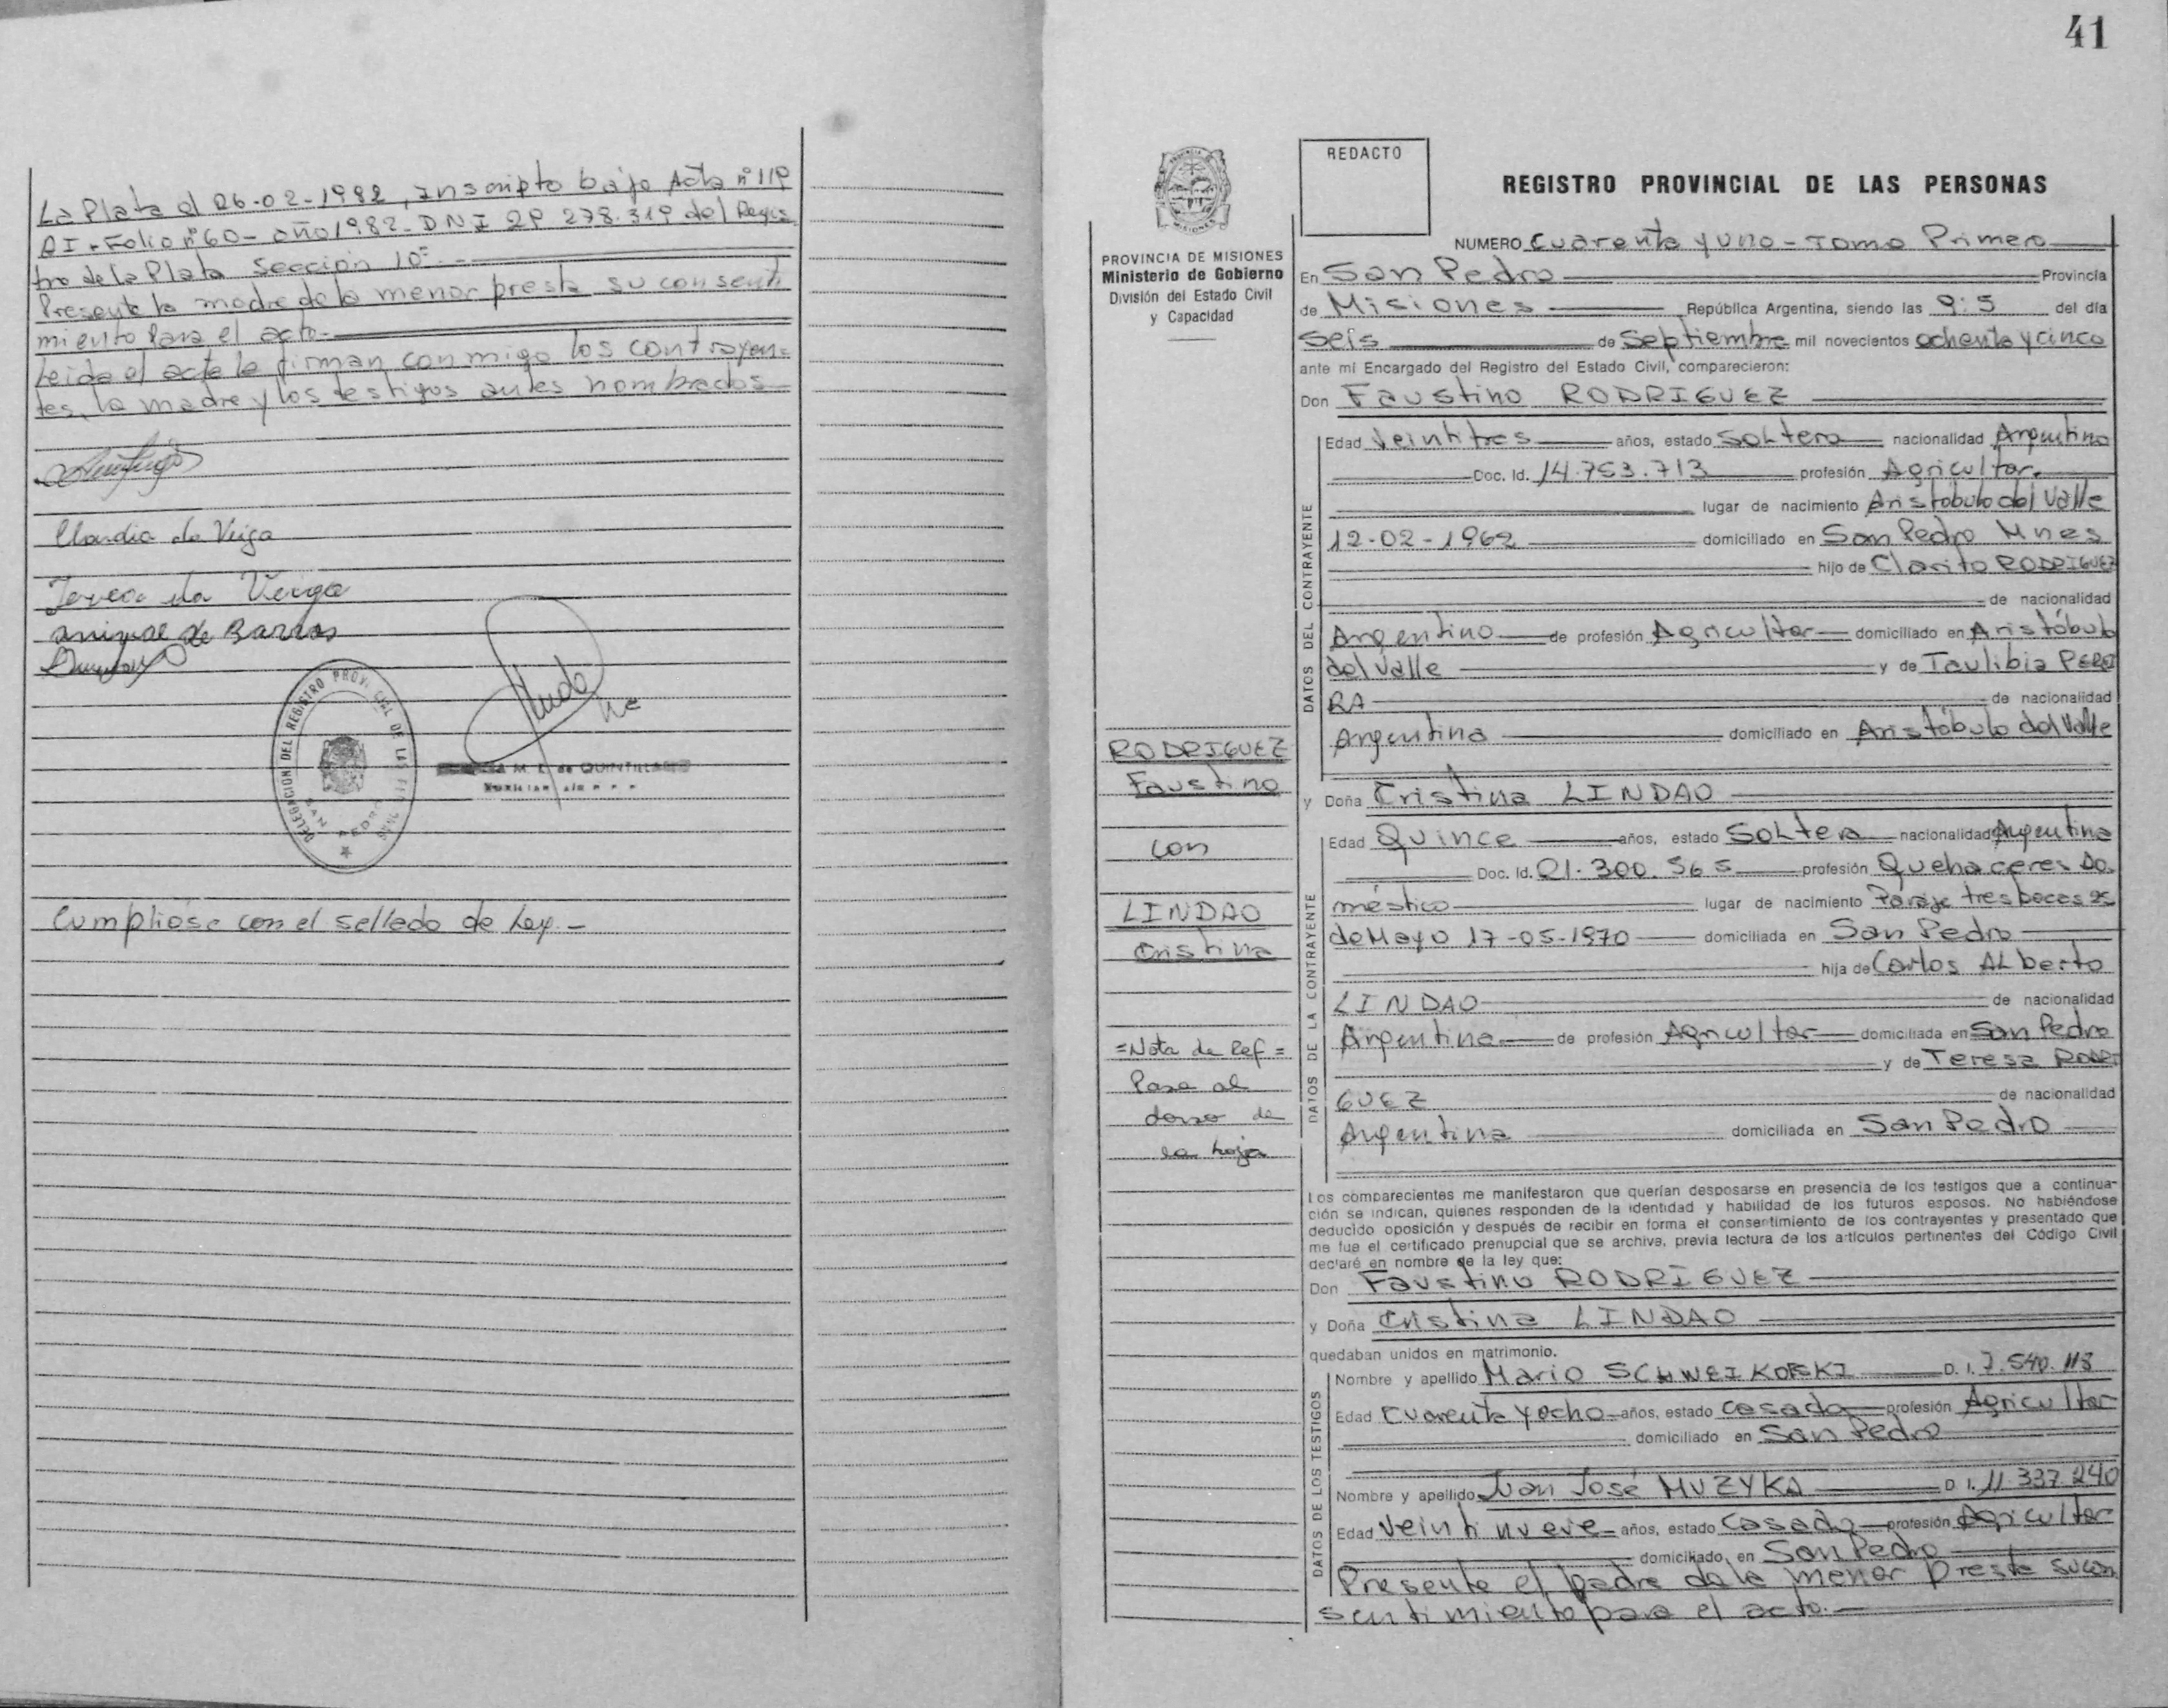 La Plata el 26-02-1982, Inscripto bajo Acta nº 119
AI-Folio nº 60- año 1982- DNI 29 278.319 del Regis
tro de la Plata Sección 10ª-
Presente la madre de la menor presta su consenti
miento para el acto.-
Leida el acta la firman conmigo los contrayen=
tes, la madre y los testigos antes nombrados-
Claudia da Veiga
Teresa da Veiga
de Barros
DELEGACION DEL REGISTRO PROVINCIAL DE LAS PERSONAS
SAN PEDRO
M. E. de QUINTILLAN
Cumpliose con el sellado de Ley.-
41
PROVINCIA DE MISIONES
Ministerio de Gobierno
División del Estado Civil
y Capacidad
RODRIGUEZ
Faustino
con
LINDAO
Cristina
=Nota de Ref=
Pasa al
dorso de
la hoja
REDACTO
REGISTRO PROVINCIAL DE LAS PERSONAS
NUMERO Cuarenta y uno - Tomo Primero
En San Pedro Provincia
de Misiones República Argentina, siendo las 9:5 del día
Seis de Septiembre mil novecientos ochenta y cinco
ante mí Encargado del Registro del Estado Civil, comparecieron:
Don Faustino RODRIGUEZ
DATOS DEL CONTRAYENTE
Edad Veintitres años, estado Soltero nacionalidad Argentino
Doc. Id. 14.753.713 profesión Agricultor.
lugar de nacimiento Aristóbulo del Valle
12-02-1962 domiciliado en San Pedro Mnes
hijo de Clarito RODRIGUEZ
de nacionalidad
Argentino de profesión Agricultor domiciliado en Aristóbulo
del Valle y de Taulibia PEREI
RA de nacionalidad
Argentina domiciliado en Aristóbulo del Valle
y Doña Cristina LINDAO
DATOS DE LA CONTRAYENTE
Edad Quince años, estado Soltera nacionalidad Argentina
Doc. Id. 21.300.565 profesión Quehaceres Do.
méstico lugar de nacimiento Paraje tres bocas 25
de Mayo 17-05-1970 domiciliada en San Pedro
hija de Carlos ALberto
LINDAO de nacionalidad
Argentina de profesión Agricultor domiciliada en San Pedro
y de Teresa RODRI
GUEZ de nacionalidad
Argentina domiciliada en San Pedro
Los comparecientes me manifestaron que querían desposarse en presencia de los testigos que a continua-
ción se indican, quienes responden de la identidad y habilidad de los futuros esposos. No habiéndose
deducido oposición y después de recibir en forma el consentimiento de los contrayentes y presentado que
me fue el certificado prenupcial que se archiva, previa lectura de los artículos pertinentes del Código Civil
declaré en nombre de la ley que:
Don Faustino RODRIGUEZ
y Doña Cristina LINDAO
quedaban unidos en matrimonio.
DATOS DE LOS TESTIGOS
Nombre y apellido Mario SCHWEIKOFSKI D. I. 7.540.113
Edad Cuarenta y ocho años, estado Casado profesión Agricultor
domiciliado en San Pedro
Nombre y apellido Juan José MUZYKA D I. 11.337.240
Edad Veinti nueve años, estado Casado profesión Agricultor
domiciliado en San Pedro
Presente el padre de la menor Presta su con
sentimiento para el acto.-